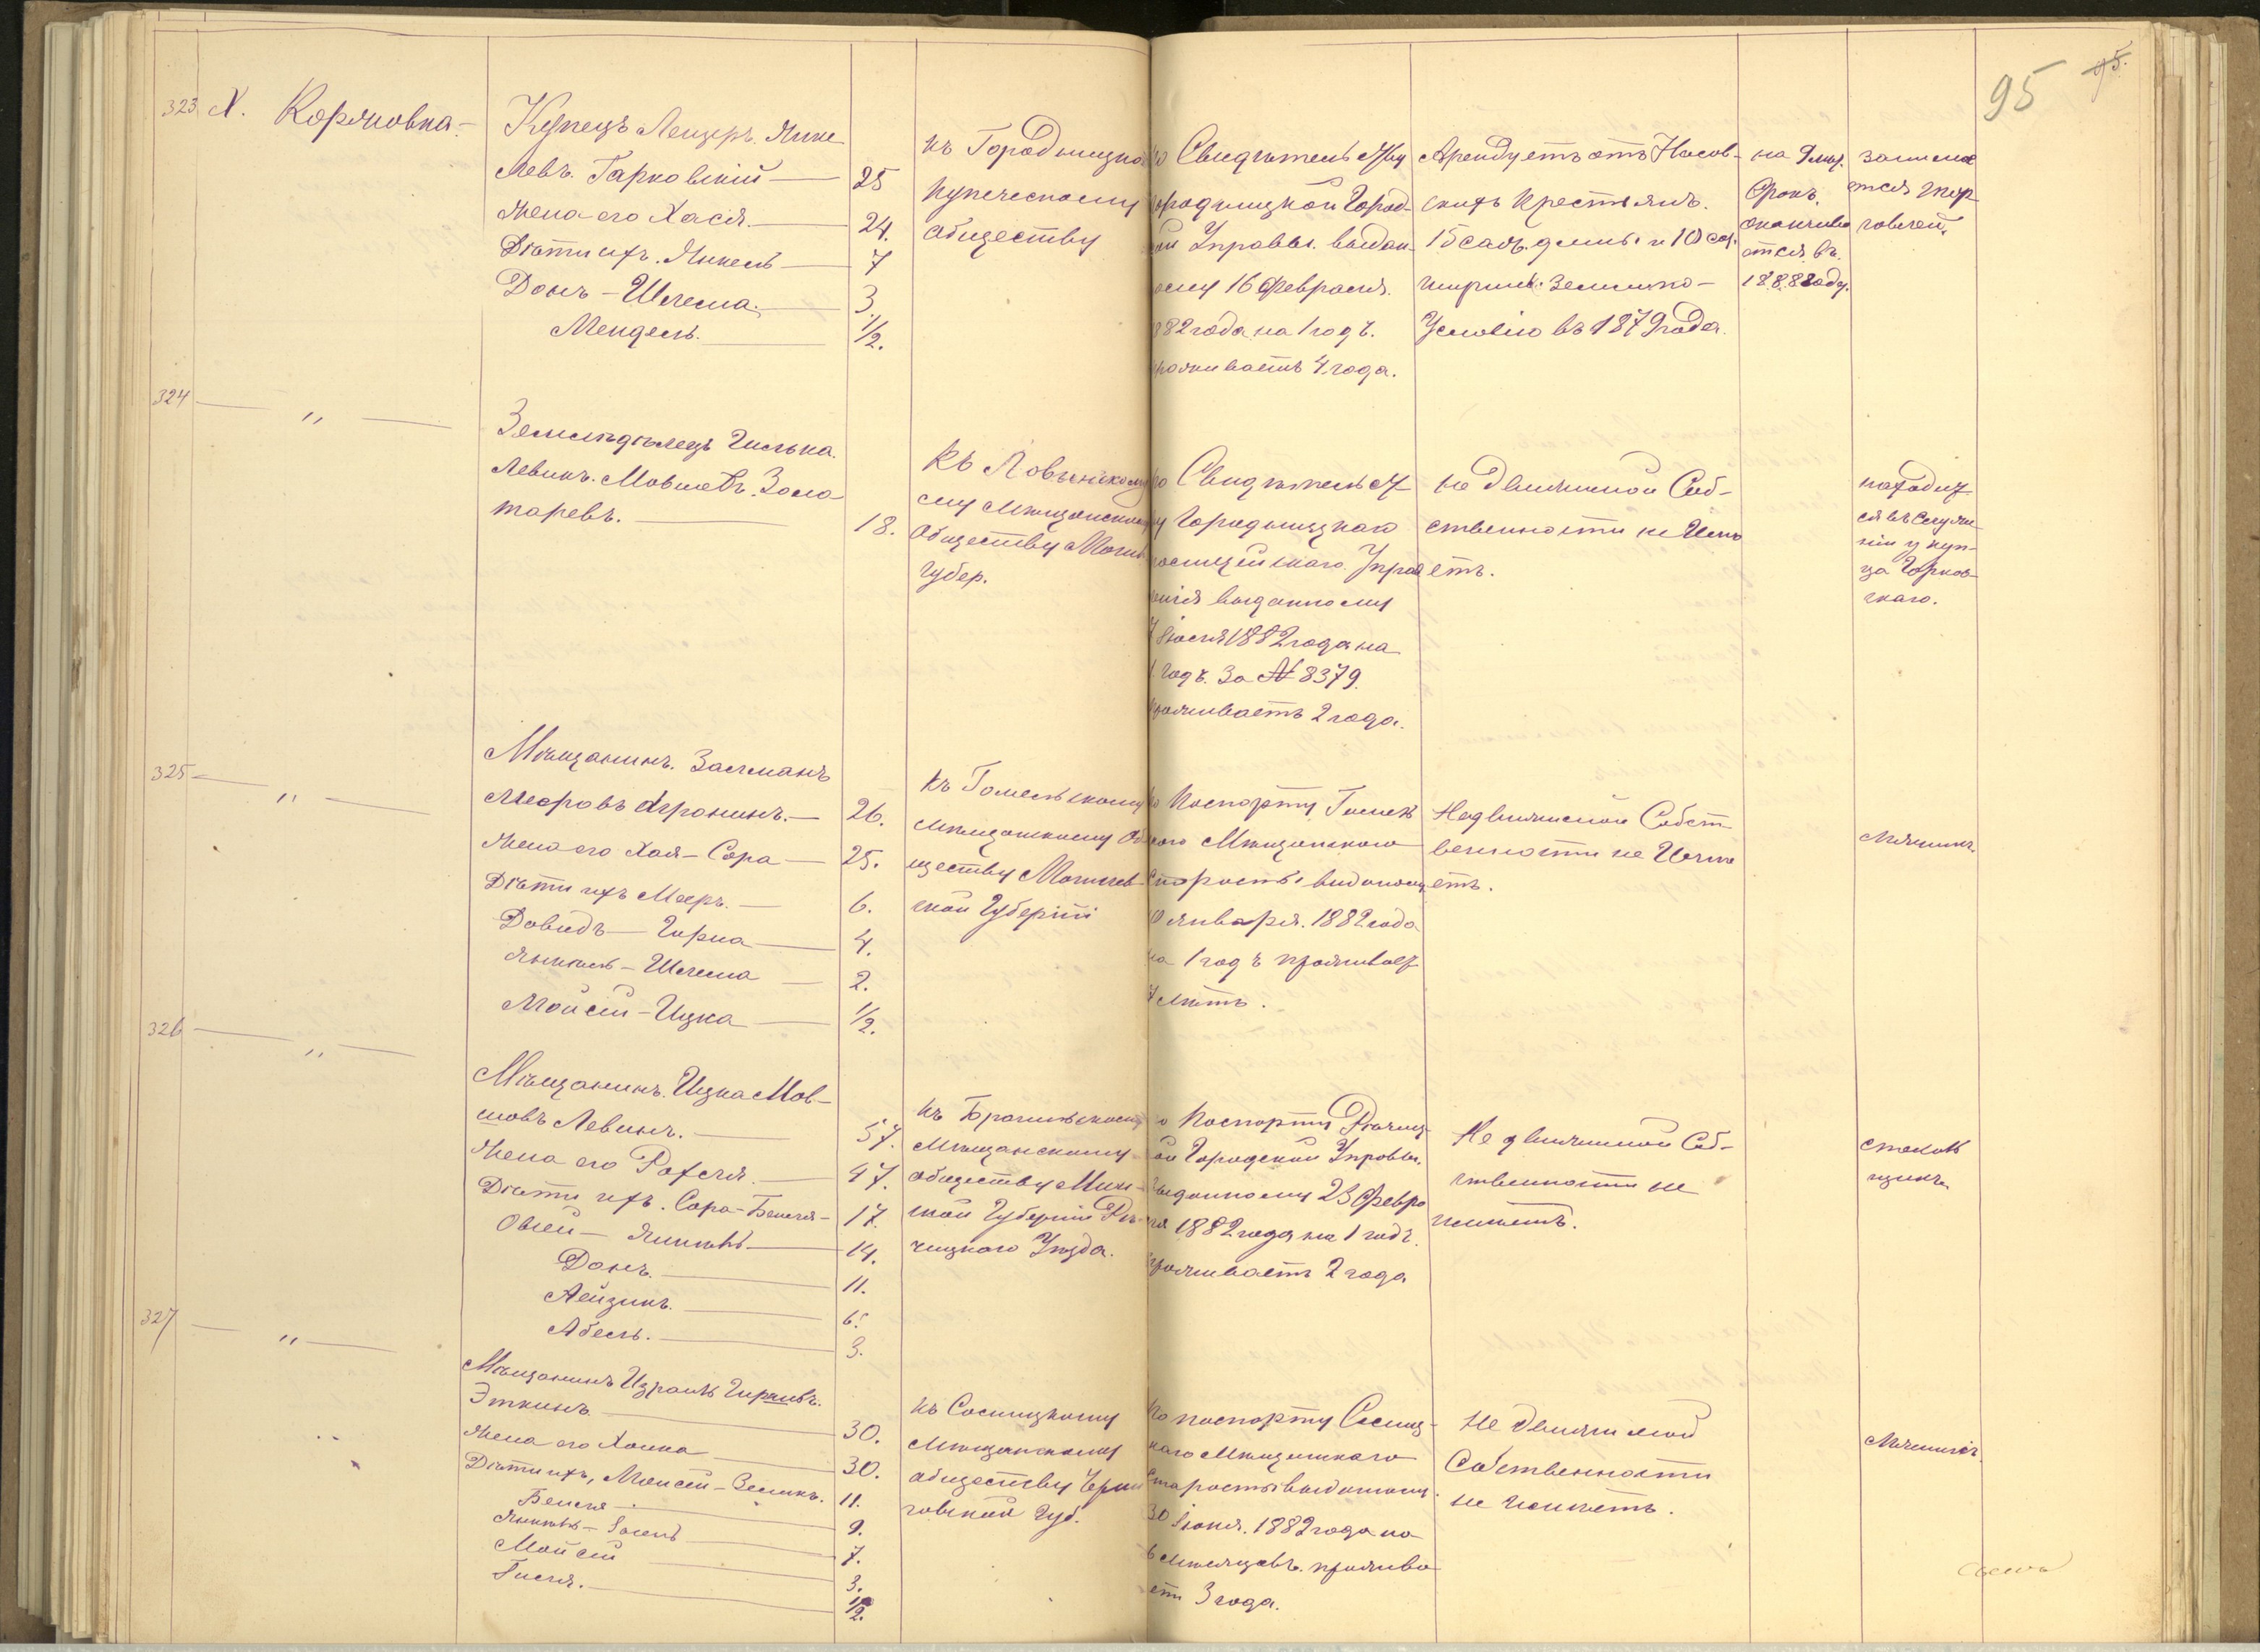 95
323 Х. Коряковка.
Купецъ Лейзеръ Янке
левъ Гарковскій — 25
Жена его Хася. — 24.
Дѣти ихъ. Янкель — 7
Донъ - Шлема. — 3.
Мендель. — 1/2.
къ Городницко
купеческому
обществу
Свидѣтельству
городницкой Город-
ской Управы. выдан
ному 16 Февраля.
1882 года на 1 годъ.
проживаетъ 4 года.
Арендуетъ отъ Носов-
скихъ Крестьянъ.
15 саж. длины и 10 саж.
ширины земли по
Условію въ 1879 года.
на 9 лѣт.
Срокъ,
оканчива
ется въ
1888 году.
занимае
тся тор
говлей.
324 — " —
Земледѣлецъ Гилька
Левикъ. Мовшовъ. Золо
таревъ. — 18.
Къ
му Мѣщанскому
Обществу Могил
Губер.
Свидѣтельст
ву Городницкаго
полицейскаго Управ
ленія выданному
7 Іюля 1882 года на
1 годъ. За № 8379.
проживаетъ 2 года.
не движимой Соб-
ственности не Имѣ
етъ.
находит
ся въ Служе-
ніи у куп-
ца Горков-
скаго.
325 — " —
Мѣщанинъ. Залманъ
Мееровъ Агронинъ. — 26.
Жена его Хая - Сора — 25.
Дѣти ихъ Мееръ. — 6.
Довидъ — Гирша — 4.
Янкель - Шлема — 2.
Мойсей - Ицка — 1/2.
къ Гомельскому
мѣщанскому Об
ществу Могилев-
ской Губерніи
Паспорту Гомель
скаго Мѣщанскаго
Старосты выданому
10 января. 1882 года
на 1 годъ проживает
7 лѣтъ.
Недвижимой Собст
венности не Имѣ
етъ.
Мѣлникъ.
326 — " —
Мѣщанинъ. Ицка Мов-
шовъ Левинъ. — 57.
Жена его Рохля. — 47.
Дѣти ихъ. Сора - Бейля - 17.
Овсей — Янкель — 14.
Донъ. — 11.
Лейзикъ. — 6.
Абель. — 3.
къ Брагинскому
Мѣщанскому
обществу Мин-
ской Губерніи Рѣ-
чицкаго Уѣзда.
Паспорту Рѣчиц-
кой Городской Управы.
выданному 23 Февра
ля 1882 года на 1 годъ.
проживаетъ 2 года
Не движимой Соб-
ственности не
имѣетъ.
стеколь
щикъ.
327 — " —
Мѣщанинъ Израиль Гиршовъ.
Эткинъ. — 30.
Жена его Хоика — 30.
Дѣти ихъ, Моисей - Зеликъ. 11.
Бейля — 9.
Янкель — 7.
Мойсей — 3.
Гиля. — 1/2.
къ Сосницкому
Мѣщанскому
обществу Черни
говской Губ.
По паспорту Сосниц-
каго Мѣщанскаго
Старосты выданому
30 Іюня. 1882 года на
6 мѣсяцевъ. прожива
етъ 3 года.
Не движимой
Собственности
не имѣетъ.
Мѣлникъ.